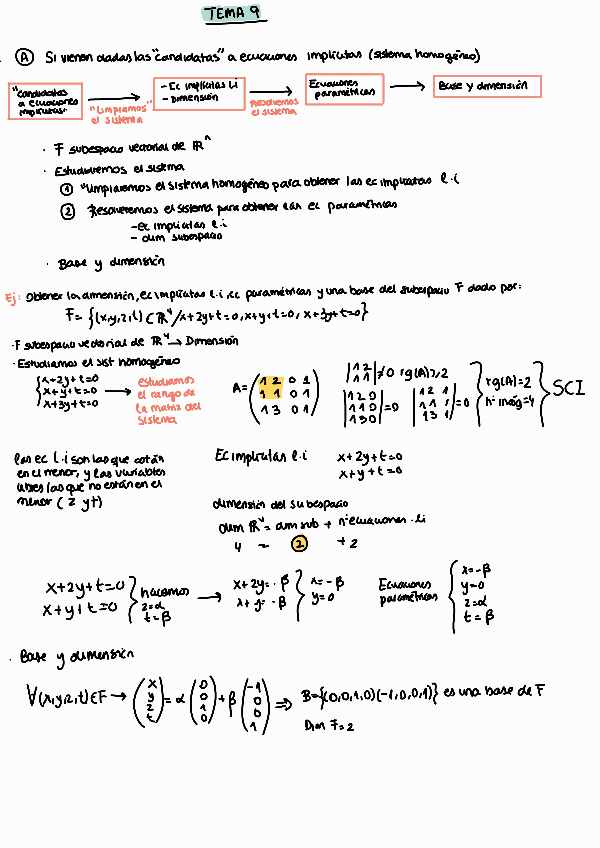 TEMA 9
Ⓐ Si vienen dadas las "candidatas" a ecuaciones implícitas (sistema homogéneo)
"candidatas a ecuaciones implícitas" → "Limpiamos" el sistema → - Ec implícitas l.i - Dimensión → Resolvemos el sistema → Ecuaciones paramétricas → Base y dimensión
· F subespacio vectorial de ℝⁿ
· Estudiaremos el sistema
① "Limpiaremos el sistema homogéneo para obtener las ec implicitas l.i
② Resolveremos el sistema para obtener las ec paramétricas
- ec implicitas l.i
- dim subespacio
· Base y dimensión
Ej: Obtener la dimensión, ec implícitas l.i, ec paramétricas y una base del subespacio F dado por:
F = {(x,y,z,t) ⊂ ℝ⁴/x+2y+t=0, x+y+t=0, x+3y+t=0}
· F subespacio vectorial de ℝ⁴ → Dimensión
· Estudiamos el sist homogéneo
{ x+2y+t=0
x+y+t=0
x+3y+t=0
→ estudiamos el rango de la matriz del sistema
A = (1 2 0 1
1 1 0 1
1 3 0 1)
|1 2
1 1| ≠0 rg(A)≥2
|1 2 0
1 1 0
1 3 0| =0
|1 2 1
1 1 1
1 3 1| =0
rg(A)=2
nº incóg=4
} SCI
Las ec l.i son las que están
en el menor, y las variables
libres las que no están en el
menor (z y t)
Ec implícitas l.i x+2y+t=0
x+y+t=0
dimensión del subespacio
dim ℝ⁴ = dim sub + nº ecuaciones l.i
4 = 2 + 2
x+2y+t=0
x+y+t=0
} hacemos
z=α
t=β
→ x+2y=-β
x+y=-β
} x=-β
y=0
Ecuaciones paramétricas
{ x=-β
y=0
z=α
t=β
· Base y dimensión
∀(x,y,z,t)∈F → (x
y
z
t) = α (0
0
1
0) + β (-1
0
0
1) ⇒ B={(0,0,1,0)(-1,0,0,1)} es una base de F
Dim F=2